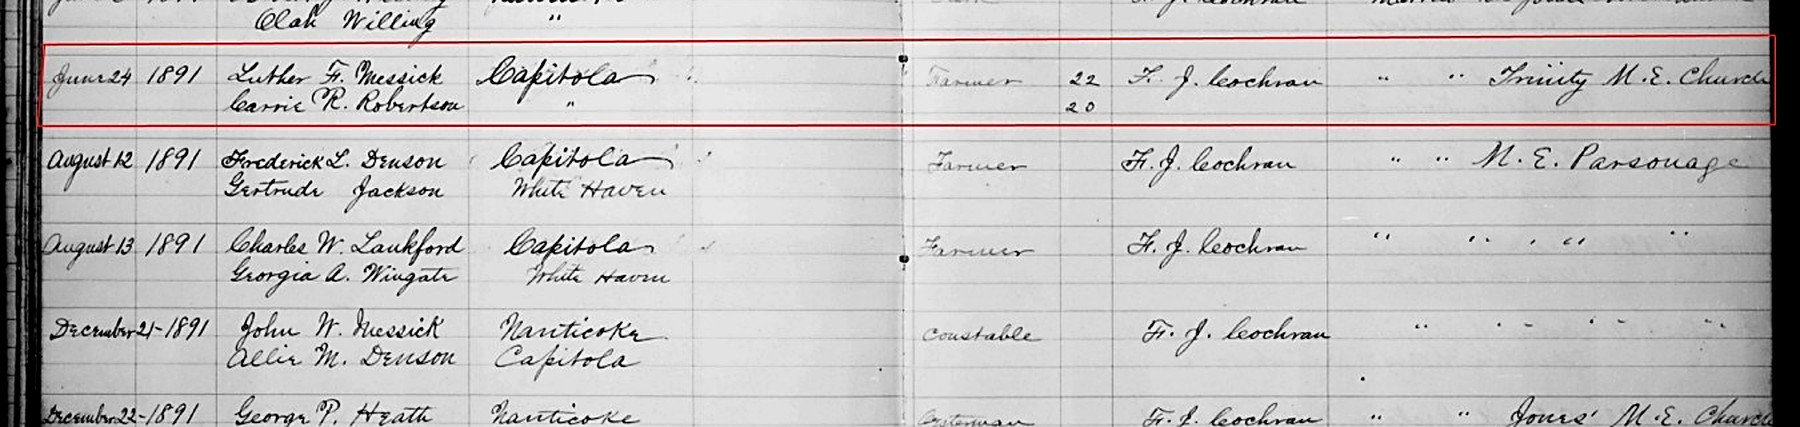 Olah Willing "
June 24 1891 Luther F. Messick Capitola Farmer 22 F. J. Cochran " " Trinity M. E. Church
Carrie R. Robertson " 20
August 12 1891 Frederick L. Denson Capitola Farmer F. J. Cochran " " M. E. Parsonage
Gertrude Jackson White Haven
August 13 1891 Charles W. Lankford Capitola Farmer F. J. Cochran " " " " "
Georgia A. Wingate White Haven
December 21-1891 John W. Messick Nanticoke Constable F. J. Cochran " " " "
Allie M. Denson Capitola
December 22-1891 George P. Heath Nanticoke Oysterman F. J. Cochran " " Jones' M. E. Church